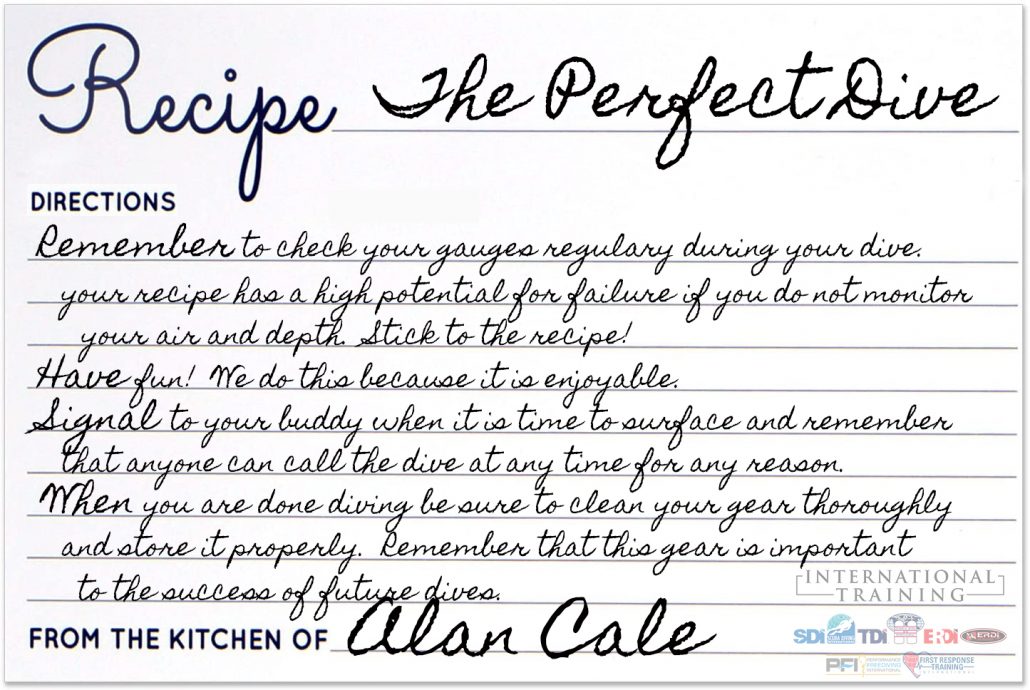 Recipe The Perfect Dive
DIRECTIONS
Remember to check your gauges regulary during your dive.
your recipe has a high potential for failure if you do not monitor
your air and depth. Stick to the recipe!
Have fun! We do this because it is enjoyable.
Signal to your buddy when it is time to surface and remember
that anyone can call the dive at any time for any reason.
When you are done diving be sure to clean your gear thoroughly
and store it properly. Remember that this gear is important
to the success of future dives.
INTERNATIONAL
TRAINING
FROM THE KITCHEN OF Alan Cale
SDI TDI ERDI ERDI
PFI PERFORMANCE FREEDIVING INTERNATIONAL FIRST RESPONSE TRAINING INTERNATIONAL